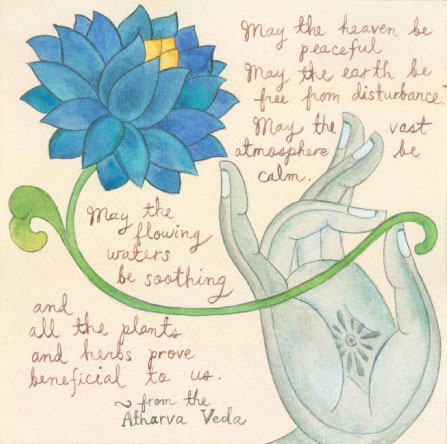 May the heaven be
peaceful
May the earth be
free from disturbance.
May the vast
atmosphere be
calm.
May the
flowing
waters
be soothing
and
all the plants
and herbs prove
beneficial to us.
~ from the
Atharva Veda